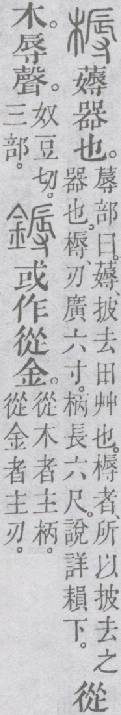 槈薅器也。
蓐部曰。薅、披去田艸也。槈者、所以披去之
器也。槈、刃廣六寸。柄長六尺。說詳䪼下。
從
木。辱聲。
奴豆切。
三部。
鎒或作從金。
從木者主柄。
從金者主刃。